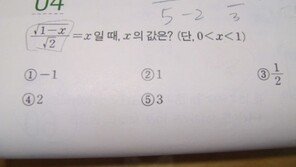 04
5-2 3
√(1-x)/√2 = x 일 때, x의 값은? (단, 0<x<1)
① -1 ② 1 ③ 1/2
④ 2 ⑤ 3